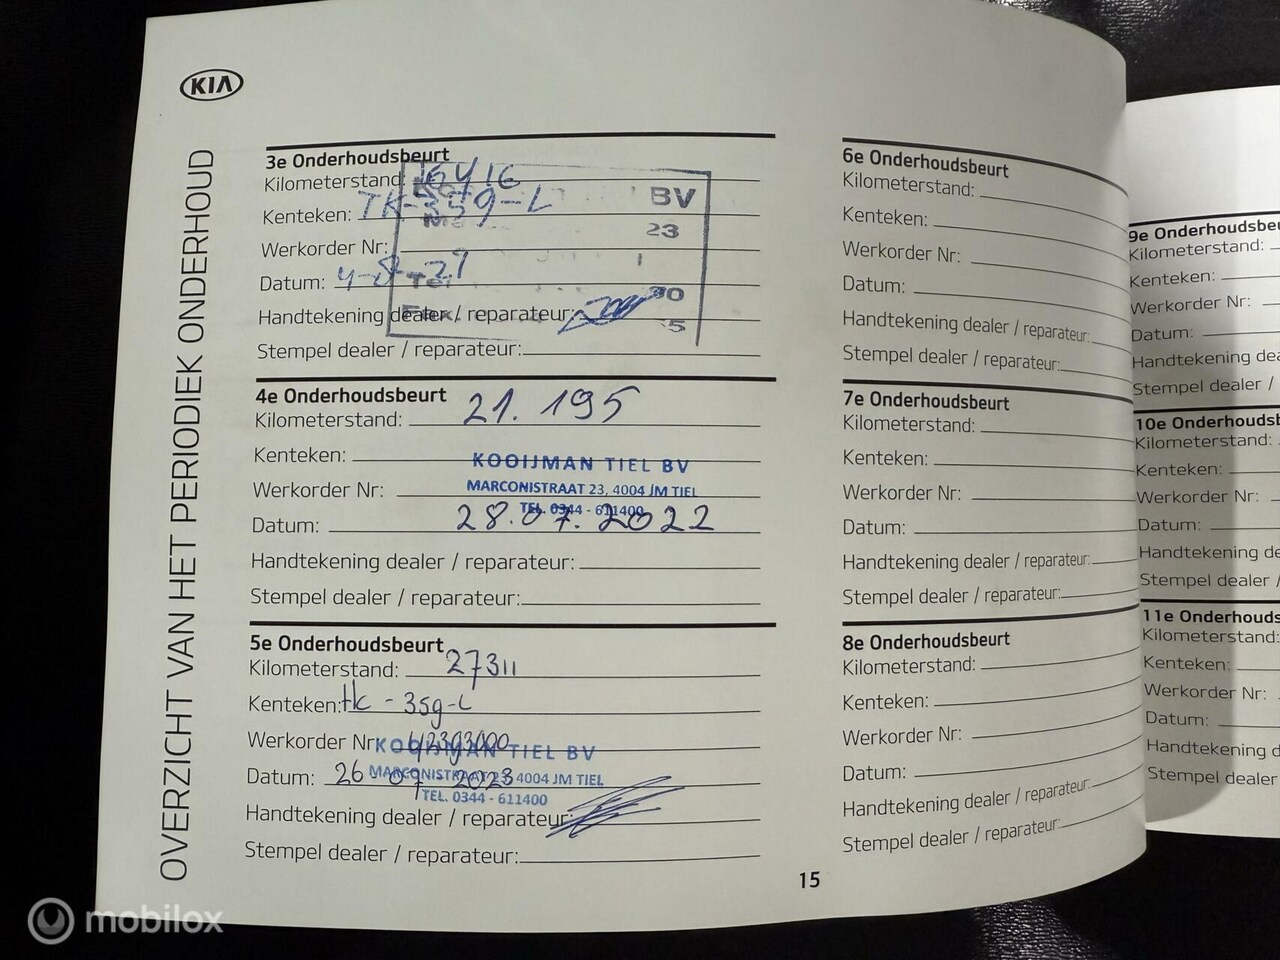 KIA
OVERZICHT VAN HET PERIODIEK ONDERHOUD
3e Onderhoudsbeurt
Kilometerstand: 16416
Kenteken: TK-359-L
Werkorder Nr:
Datum:
Handtekening dealer / reparateur:
Stempel dealer / reparateur:
BV
23
4e Onderhoudsbeurt
Kilometerstand: 21.195
Kenteken:
KOOIJMAN TIEL BV
Werkorder Nr:
MARCONISTRAAT 23, 4004 JM TIEL
TEL. 0344 - 611400
Datum: 28.07.2022
Handtekening dealer / reparateur:
Stempel dealer / reparateur:
5e Onderhoudsbeurt
Kilometerstand: 27311
Kenteken: tk - 359-L
Werkorder Nr:
KOOIJMAN TIEL BV
Datum: 26 07 2023
MARCONISTRAAT 23, 4004 JM TIEL
TEL. 0344 - 611400
Handtekening dealer / reparateur:
Stempel dealer / reparateur:
6e Onderhoudsbeurt
Kilometerstand:
Kenteken:
Werkorder Nr:
Datum:
Handtekening dealer / reparateur:
Stempel dealer / reparateur:
7e Onderhoudsbeurt
Kilometerstand:
Kenteken:
Werkorder Nr:
Datum:
Handtekening dealer / reparateur:
Stempel dealer / reparateur:
8e Onderhoudsbeurt
Kilometerstand:
Kenteken:
Werkorder Nr:
Datum:
Handtekening dealer / reparateur:
Stempel dealer / reparateur:
15
9e Onderhoudsbeu
Kilometerstand:
Kenteken:
Werkorder Nr:
Datum:
Handtekening dea
Stempel dealer /
10e Onderhoudsb
Kilometerstand:
Kenteken:
Werkorder Nr:
Datum:
Handtekening de
Stempel dealer /
11e Onderhouds
Kilometerstand:
Kenteken:
Werkorder Nr:
Datum:
Handtekening d
Stempel dealer
mobilox